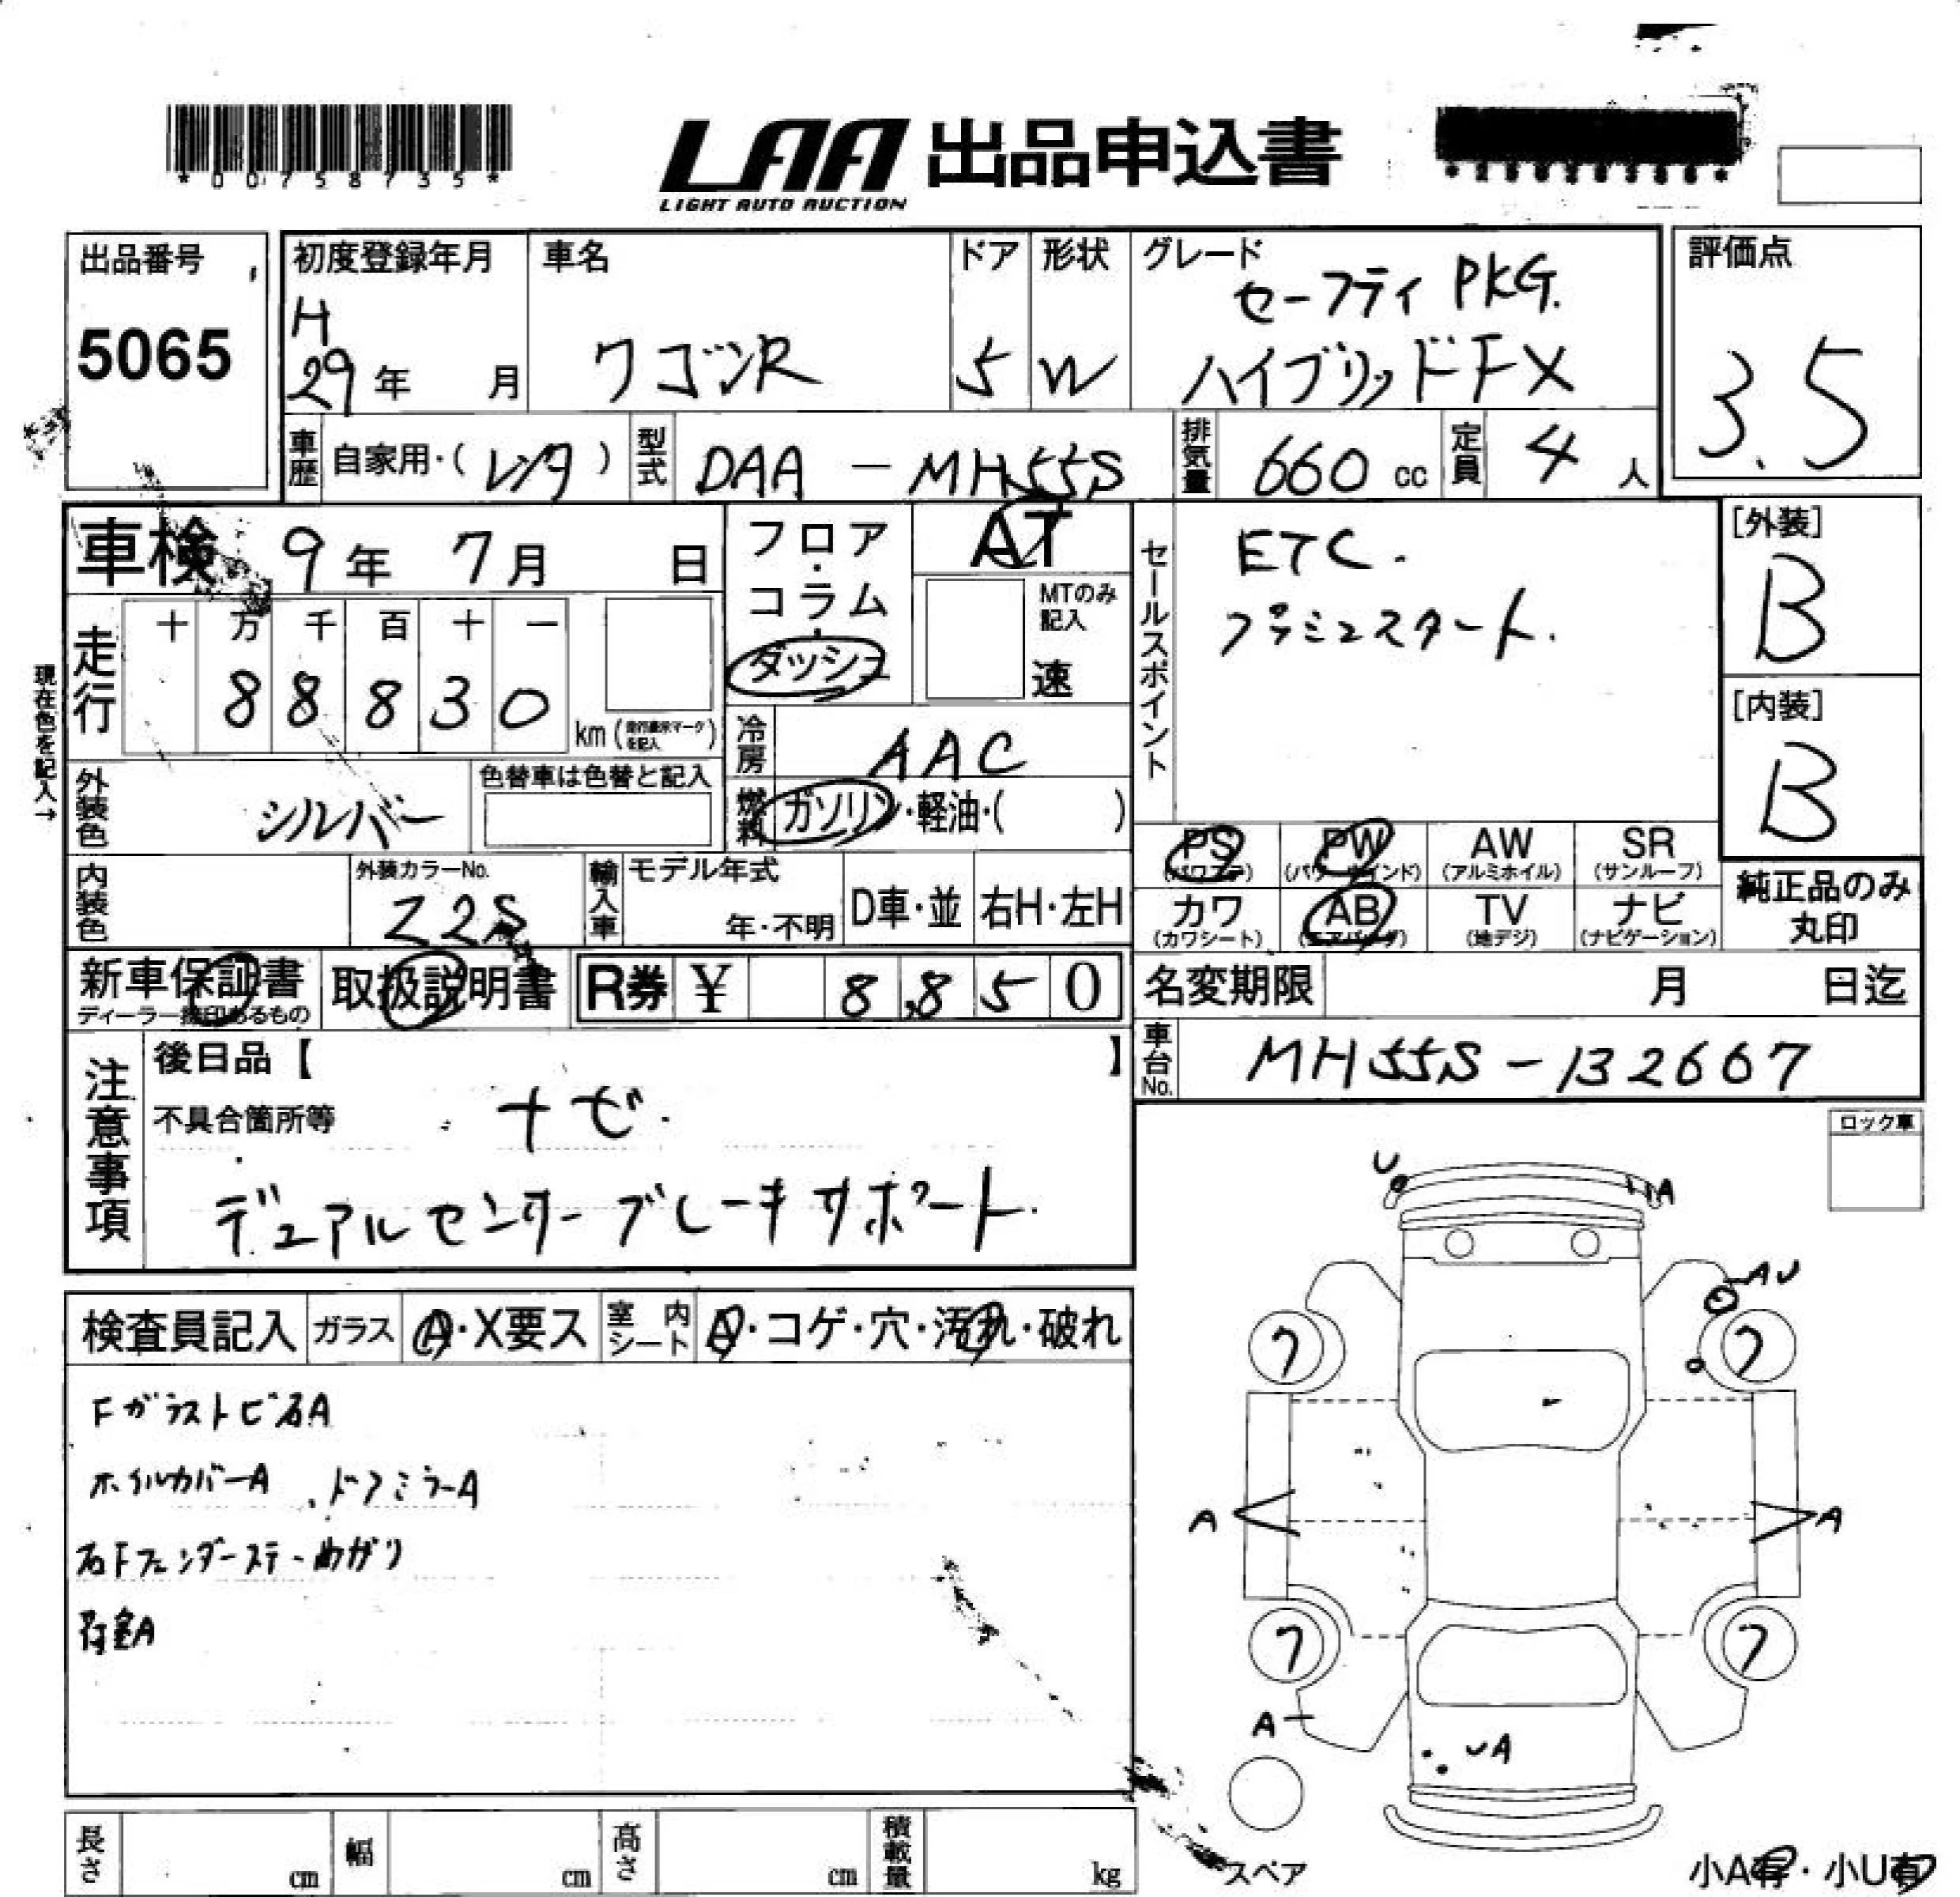 *00758735*
LAA 出品申込書
LIGHT AUTO AUCTION
出品番号
5065
初度登録年月
H
29年 月
車名
ワゴンR
ドア
5
形状
W
グレード
セーフティPKG.
ハイブリッドFX
評価点
3.5
車歴 自家用・(レンタ)
型式 DAA - MH55S
排気量 660 cc
定員 4 人
車検 9年 7月 日
フロア・コラム・ダッシュ
AT
MTのみ記入
速
セールスポイント
ETC.
プッシュスタート.
[外装]
B
[内装]
B
現在色を記入→
走行
十 万 千 百 十 一
8 8 8 3 0
km
冷房 AAC
燃料 ガソリン・軽油・( )
外装色 シルバー
色替車は色替と記入
内装色
外装カラーNo.
Z2S
輸入車
モデル年式
年・不明
D車・並
右H・左H
PS
(パワステ)
PW
(パワーウインド)
AW
(アルミホイル)
SR
(サンルーフ)
カワ
(カワシート)
AB
(エアバッグ)
TV
(地デジ)
ナビ
(ナビゲーション)
純正品のみ
丸印
新車保証書
ディーラー捺印あるもの
取扱説明書
R券 ¥ 8,850
名変期限 月 日迄
車台No. MH55S-132667
注意事項
後日品【 】
不具合箇所等
ナビ.
デュアルセンターブレーキサポート.
ロック車
検査員記入
ガラス A・X要ス
室内シート A・コゲ・穴・汚れ・破れ
Fガラストビ石A
ホイルカバーA . ドアミラーA
右Fフェンダーステー曲がり
U
A
AU
7
7
A
A
7
7
A
UA
スペア
長さ cm
幅 cm
高さ cm
積載量 kg
小A有・小U有